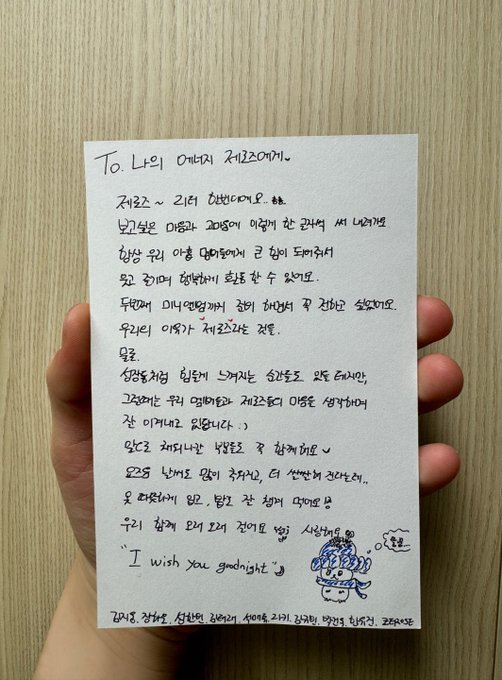 To. 나의 에너지 제로즈에게
제로즈~ 리더 한빈이에요..
보고싶은 마음과 고마움에 이렇게 한 글자씩 써 내려가요
항상 우리 아홉 멤버들에게 큰 힘이 되어주셔서
웃고 즐기며 행복하게 활동할 수 있어요.
두번째 미니앨범까지 준비 하면서 꼭 전하고 싶었어요.
우리의 이유가 "제로즈"라는 것을.
물론.
성장통처럼 힘들게 느껴지는 순간들도 있을 테지만,
그럴때는 우리 멤버들과 제로즈들의 마음을 생각하며
잘 이겨내고 있답니다 :)
앞으로 채워나갈 부분들도 꼭 함께해요
요즈음 날씨도 많이 추워지고, 더 쌀쌀해 진다는데..
옷 따뜻하게 입고, 밥도 잘 챙겨 먹어요!
우리 함께 오래 오래 걸어요 사랑해요
"I wish you goodnight"
김지웅, 장하오, 성한빈, 김태래, 석매튜, 리키, 김규빈, 박건욱, 한유진, ZEROSE